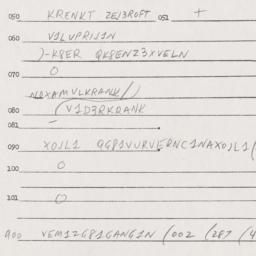 050 KRENKT ZE/3ROFT 051 +
060 V1LVPRIJ1N
)-K8ER QK8ENZ3XVELN
070 0
N0XAMVLKRANK/)
080 (V1D3RKRANK
081
090 X0JL1 GG81VURVERNC1NAX0JL1(
100 0
101 0
900 VEM1ZG81GANG1N (002 (287 (4